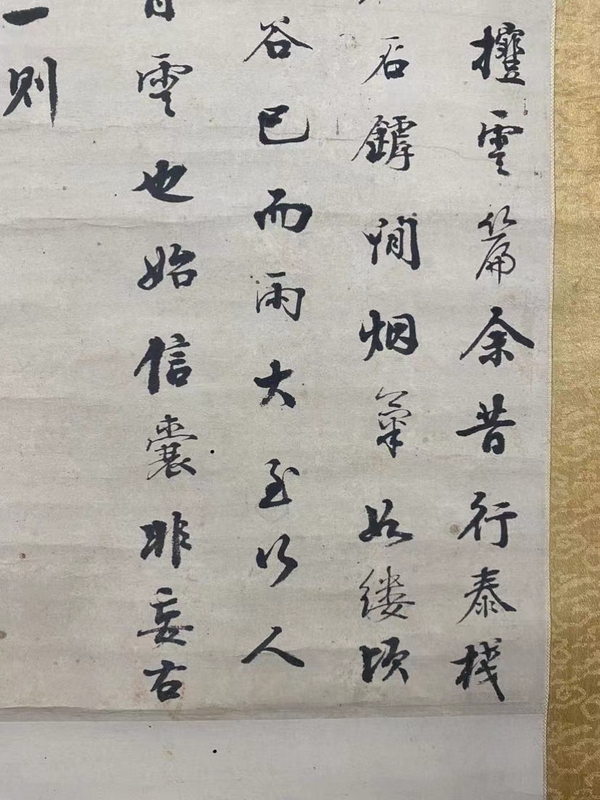 攓雲篇余昔行泰棧
石罅間烟氣如縷頃
谷已而雨大至行人
雲也始信囊非妄右
一則